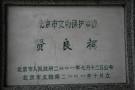 北京市文物保护单位
贤良祠
北京市人民政府二〇〇一年七月十二日公布
北京市文物局二〇〇一年十月立